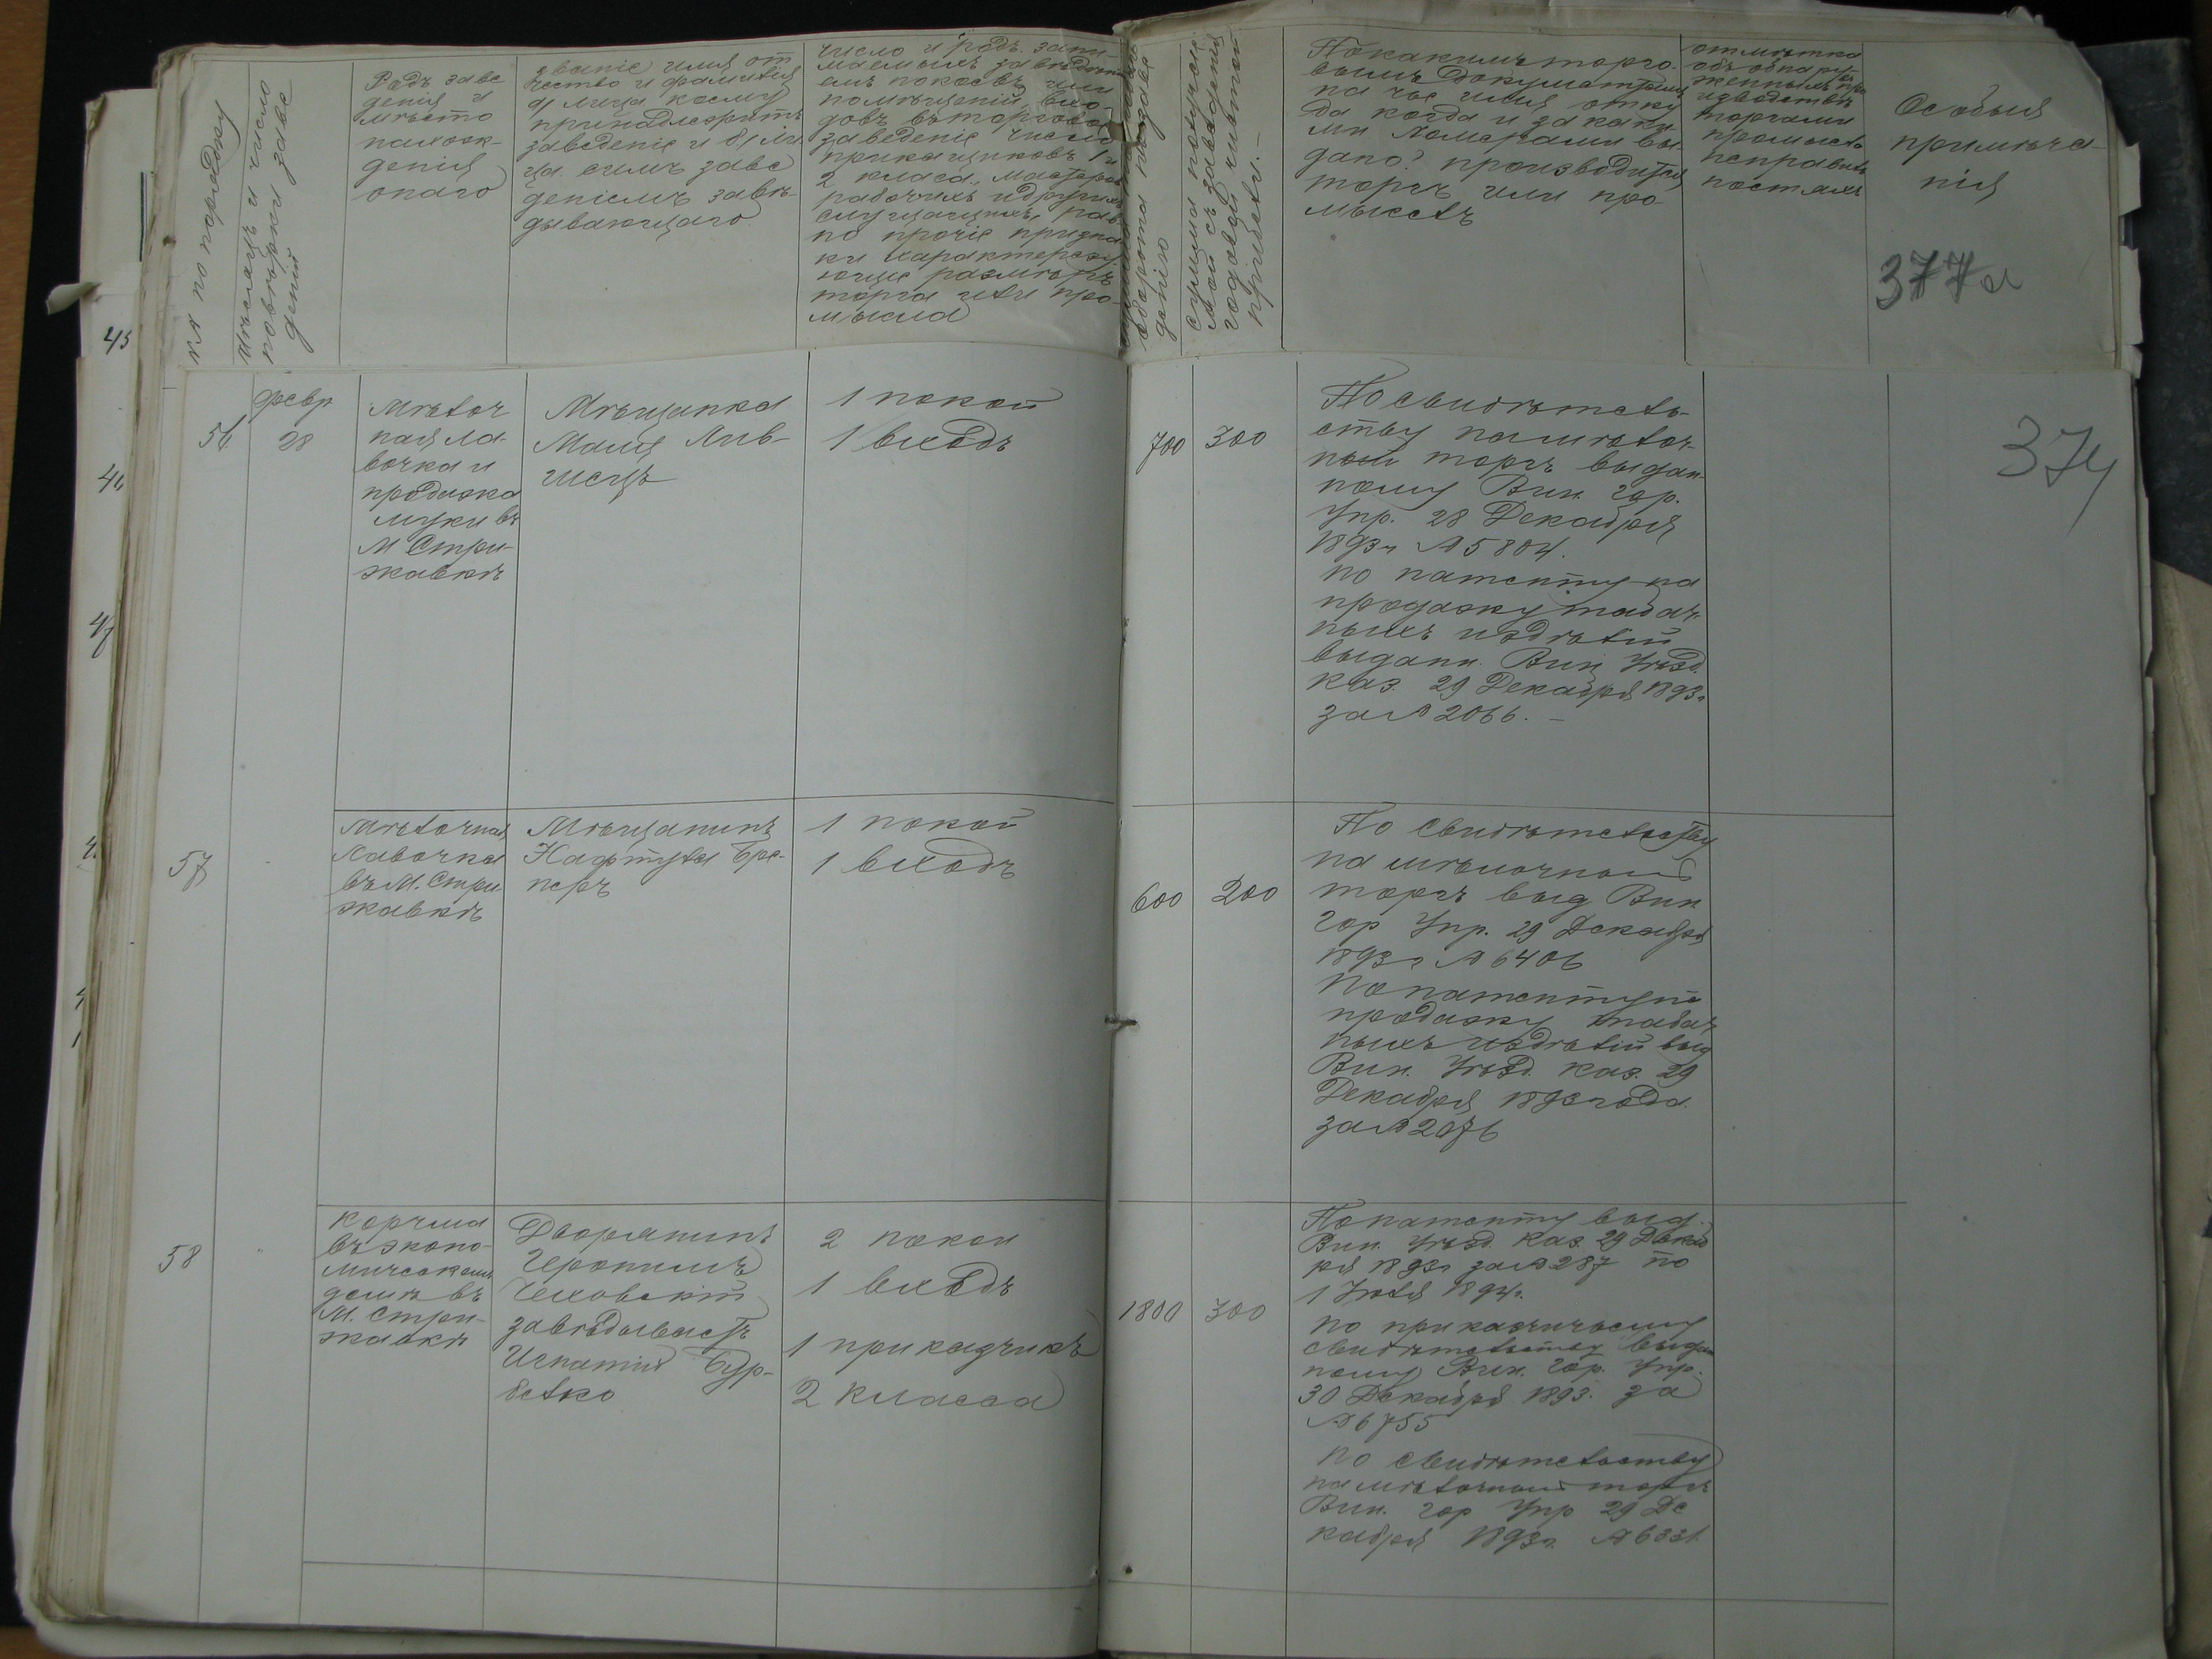 №№ по порядку
Мѣсяцъ и число
повѣрки заве
деній
Родъ заве
денія и
мѣсто
нахож-
денія
онаго
званіе имя от
чество и фамилія
а) лица коему
принадлежитъ
заведеніе и б) ли
ца симъ заве
деніемъ завѣ-
дывающаго
число и родъ зани-
маемыхъ заведені
емъ покоевъ или
помѣщеній, вхо-
довъ въ торговое
заведеніе число
прикащиковъ 1 и
2 класа, мастеров
рабочихъ и других
служащихъ, рав-
но прочіе призна
ки характеризу
ющіе размѣръ
торга или про-
мысла
оборота по заве
денію
сумма получае
мой съ заведенія
годовой чистой
прибыли.-
По какимъ торго-
вымъ документамъ
на чье имя отку
да когда и за каки
ми номерами вы
дано? производится
торгъ или про-
мыселъ
отмѣтка
объ обнару
женныхъ про
изводствѣ
торгами
промысла
неправиль
ностяхъ
Особыя
примѣча-
нія
377а
374
февр
56
28
Мѣлоч
ная ла-
вочка и
продажа
муки въ
М Стри-
жавкѣ
Мѣщанка
Маня Лив-
шецъ
1 покой
1 входъ
700
300
По свидѣтель-
ству на мѣлоч-
ный торгъ выдан-
ному Вин. Гор.
Упр. 28 Декабря
1893 г №5804.
по патенту на
продажу табач-
ныхъ издѣлій
выданн. Вин. Уѣзд.
каз. 29 Декабря 1893 г
за № 2066. -
57
Мѣлочная
Лавочка
въ М. Стри-
жавкѣ
Мѣщанинъ
Нафтула Бре-
неръ
1 покой
1 входъ
600
200
По свидѣтельству
на мѣлочной
торгъ выд Вин.
Гор Упр. 29 Декабря
1893 г № 6406
По патенту на
продажу табач
ныхъ издѣлій выд
Вин. Уѣзд. каз. 29
Декабря 1893 года
за № 2076
58
Корчма
въ эконо-
мическомъ
домѣ въ
М. Стри-
жавкѣ
Дворянинъ
Иеронимъ
Чеховскій
завѣдываетъ
Игнатій Бур-
белко
2 покои
1 входъ
1 приказчикъ
2 класса
1800
300
По патенту выд.
Вин. Уѣзд. каз. 29 Декаб
ря 1893 г за № 287 по
1 Іюля 1894 г.
по приказчичьему
свидѣтельству выдан
ному Вин. Гор. Упр.
30 Декабря 1893. за
№ 6755
по свидѣтельству
на мѣлочной торгъ
Вин. Гор Упр 29 Де
кабря 1893 г. № 6331